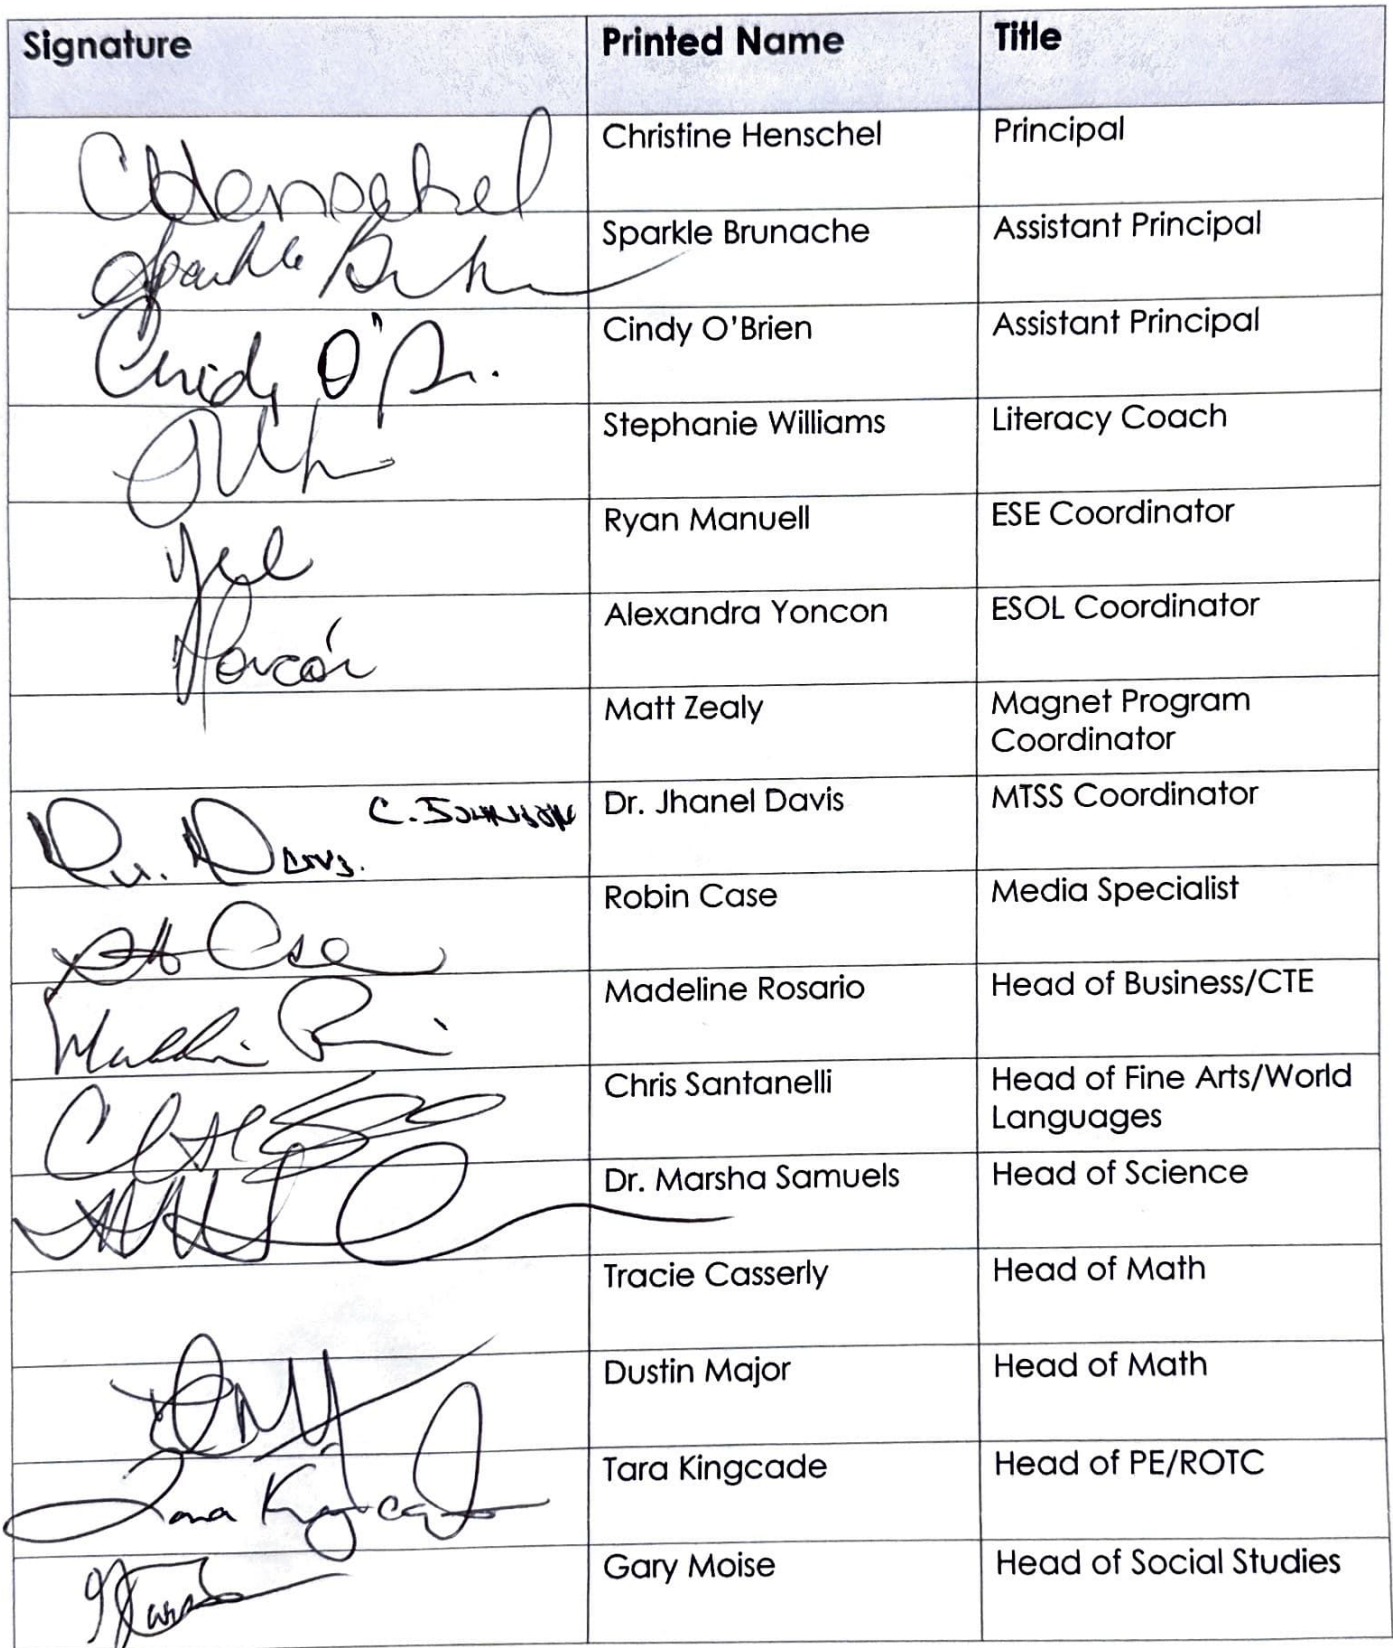 Signature Printed Name Title
CHenschel Christine Henschel Principal
Sparkle Sparkle Brunache Assistant Principal
Cindy O'Br. Cindy O'Brien Assistant Principal
Stephanie Williams Literacy Coach
Ryan Manuell ESE Coordinator
Yoncón Alexandra Yoncon ESOL Coordinator
Matt Zealy Magnet Program
Coordinator
Dr. Davis. C. JOHNSON Dr. Jhanel Davis MTSS Coordinator
Case Robin Case Media Specialist
Madeline Rosario Head of Business/CTE
Chris Santanelli Head of Fine Arts/World
Languages
Dr. Marsha Samuels Head of Science
Tracie Casserly Head of Math
Dustin Major Head of Math
Tara Kingcade Tara Kingcade Head of PE/ROTC
Gary Moise Head of Social Studies